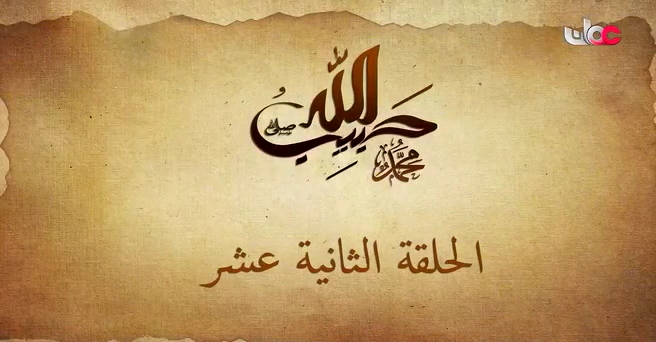 عمان
حبيب الله
ﷺ
محمد
الحلقة الثانية عشر